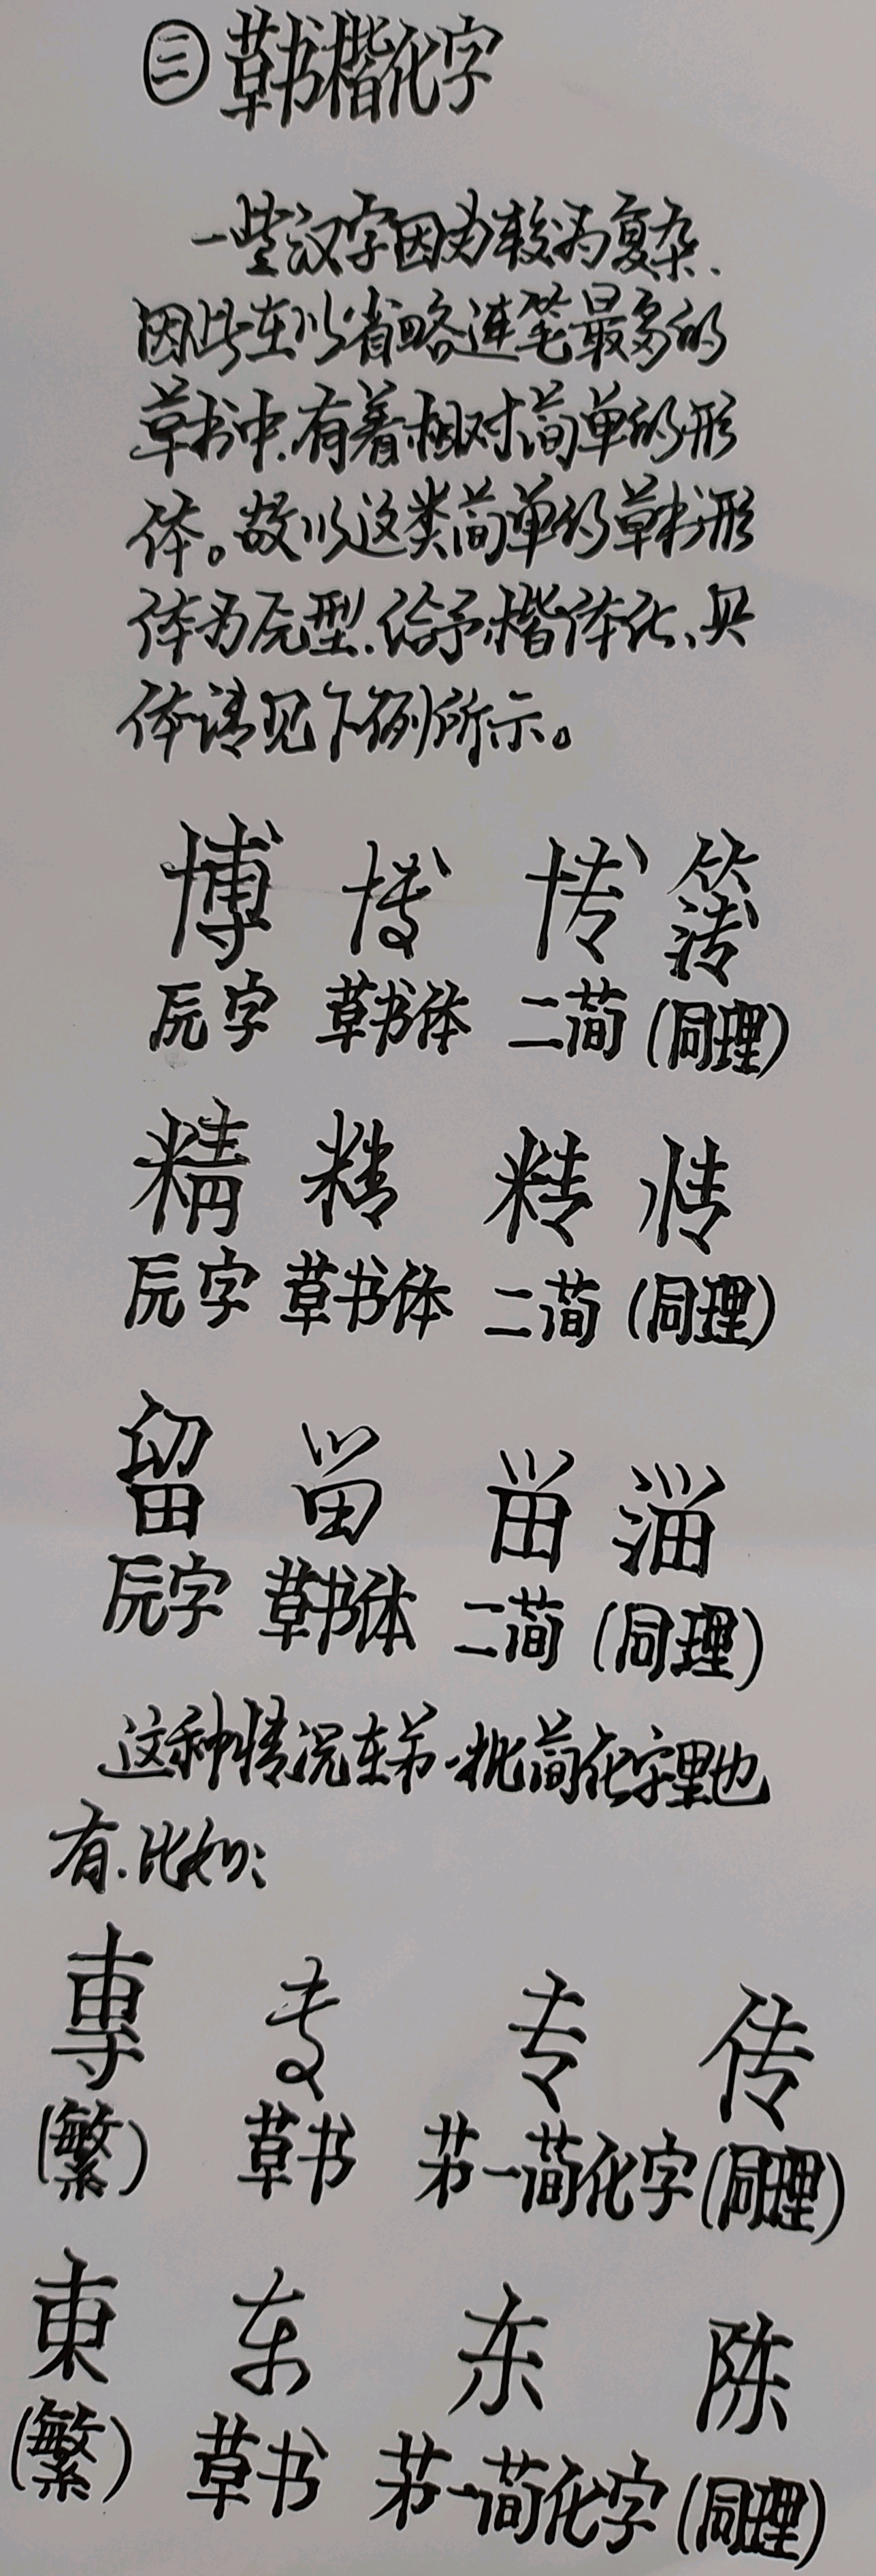 ㊂草书楷化字
一些汉字因为较为复杂、
因此在以省略连笔最多的
草书中，有着相对简单的形
体。故以这类简单的草书形
体为原型，给予楷体化、具
体请见下例所示。
博
原字 草书体 二简 (同理)
精
原字 草书体 二简 (同理)
留
原字 草书体 二简 (同理)
这种情况在第一批简化字里也
有，比如：
專 专 专 传
(繁) 草书 第一简化字 (同理)
東 东 东 陈
(繁) 草书 第一简化字 (同理)